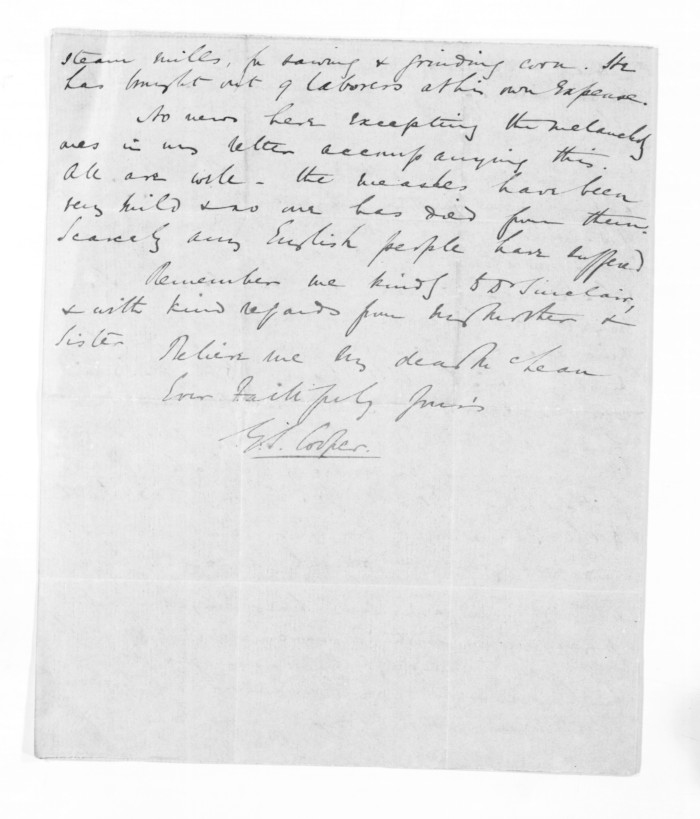 steam mills, for sawing & grinding corn. He
has brought out 9 laborers at his own Expense.
No news here excepting the melancholy
ones in my letter accompanying this.
All are well - the measles have been
very mild & no one has died from them.
Scarcely any English people have suffered
Remember me kindly to Dr Sinclair,
& with kind regards from my Mother &
Sister
Believe me my dear McLean
Ever Faithfully Yours
G.S. Cooper.